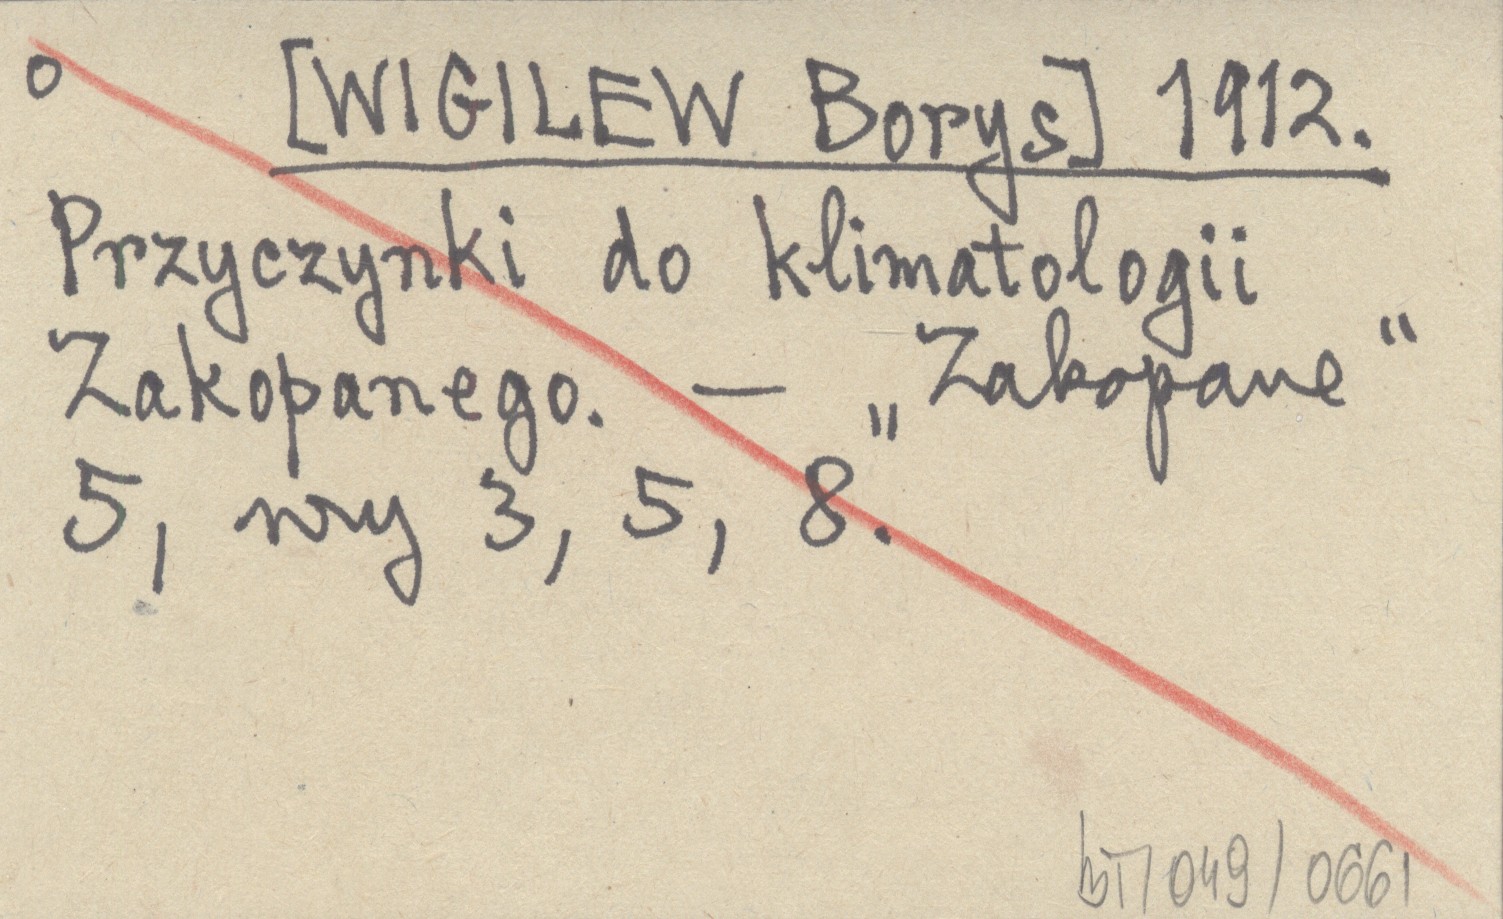 o [WIGILEW Borys] 1912.
Przyczynki do klimatologii
Zakopanego. — „Zakopane"
5, nry 3, 5, 8.
bT/049/0661